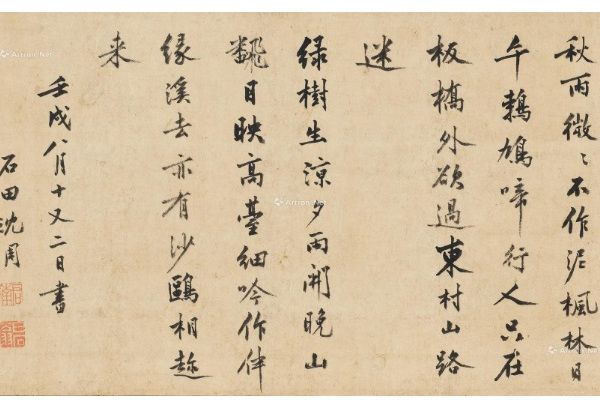 秋雨微〻不作泥楓林日
午鵓鳩啼行人只在
板橋外欲過東村山路
迷
緑樹生涼夕雨開晚山
飜日映高臺細吟作伴
緣溪去亦有沙鷗相趂
来
壬戌八月十又二日書
石田沈周
Artron.Net